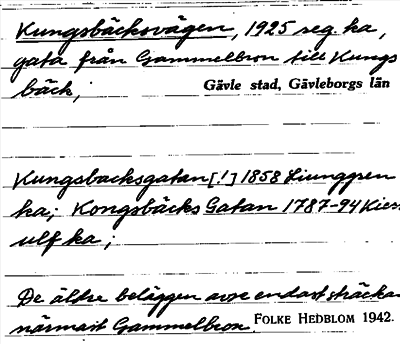 Kungsbäcksvägen, 1925 reg. ka,
gata från Gammelbron till Kungs
bäck;
Gävle stad, Gävleborgs län
Kungsbacksgatan [!] 1858 Ljunggren
ka; Kongsbäcks Gatan 1787-94 Kier
ulf ka;
De äldre beläggen avse endast sträckan
närmast Gammelbron.
FOLKE HEDBLOM 1942.